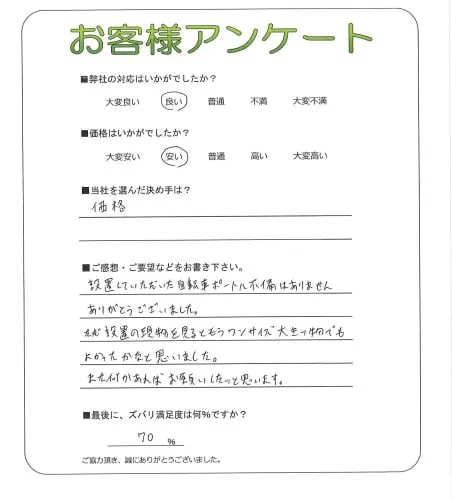 お客様アンケート
■弊社の対応はいかがでしたか?
大変良い 良い 普通 不満 大変不満
■価格はいかがでしたか?
大変安い 安い 普通 高い 大変高い
■当社を選んだ決め手は?
価格
■ご感想・ご要望などをお書き下さい。
設置していただいた自転車ポートル不備はありません
ありがとうございました。
ただ設置の現物を見るともうワンサイズ大きい物でも
よかったかなと思いました。
また何かあればお願いしたいと思います。
■最後に、ズバリ満足度は何%ですか?
70 %
ご協力頂き、誠にありがとうございました。